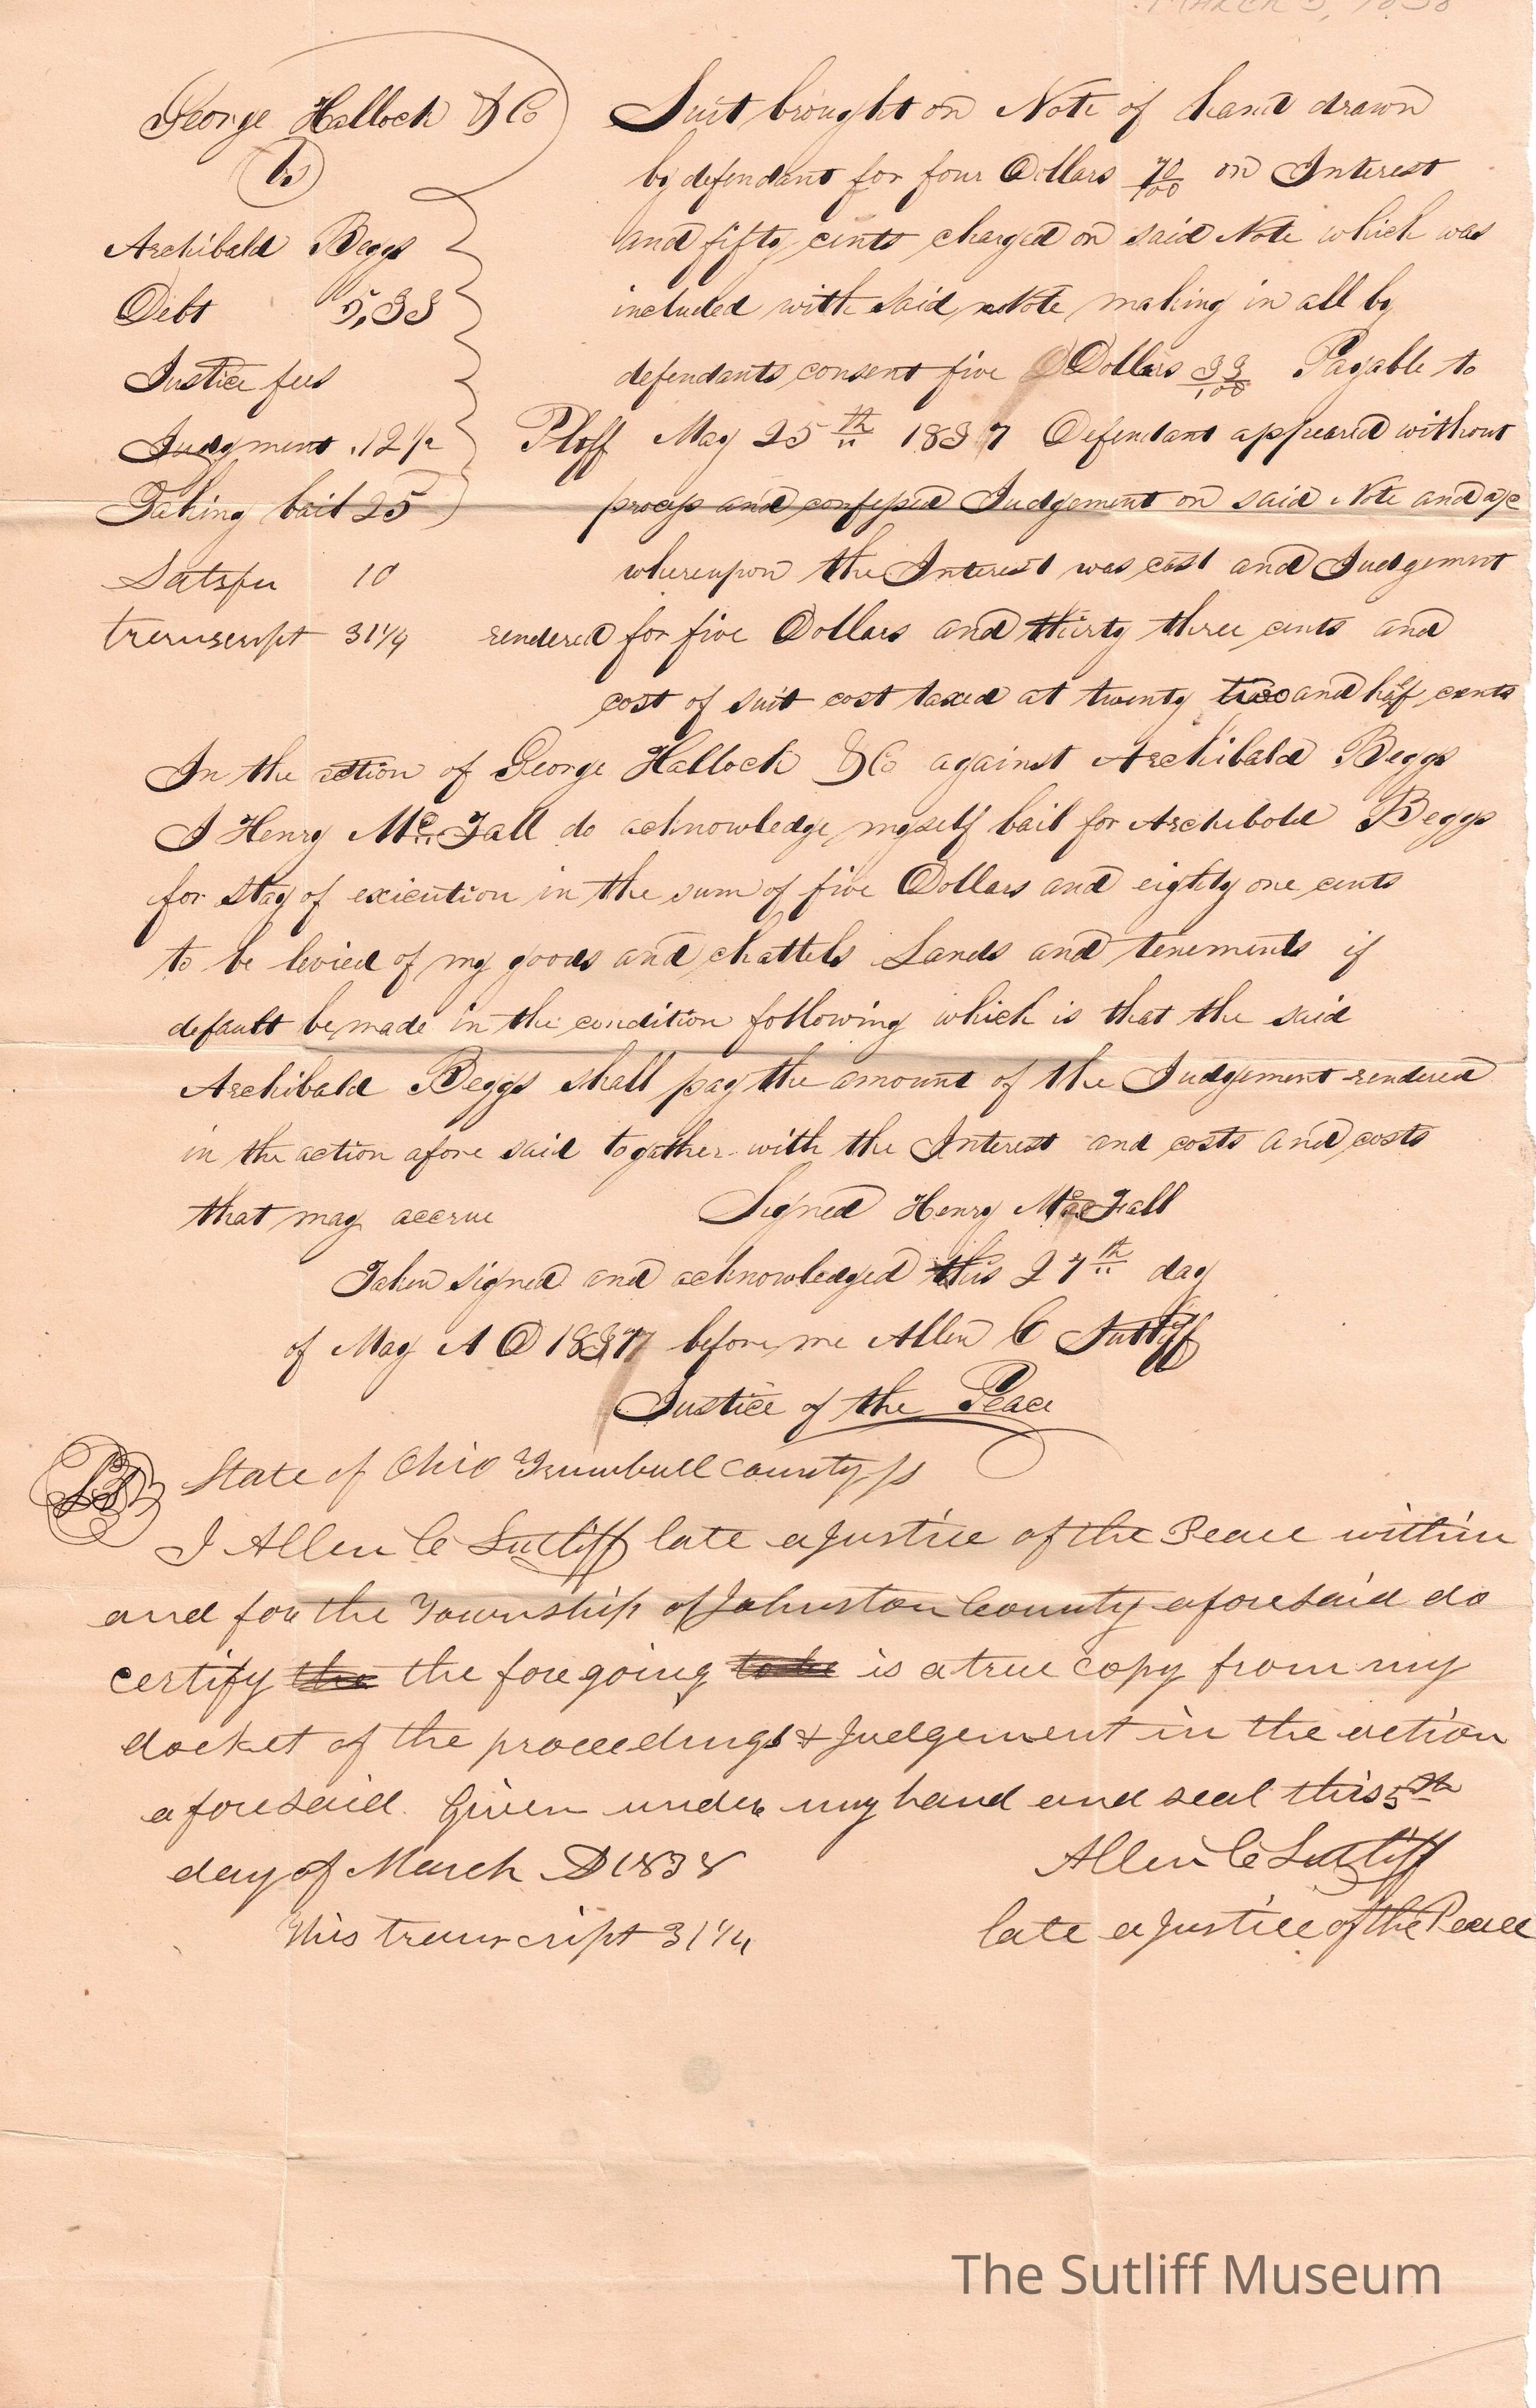 MARCH 5, 1838
George Halloch & Co
vs
Archibald Beggs
Debt 5,33
Justice fees
Judgment .12 1/2
Taking bail 25
Satsfu 10
transcript 31 1/4
Suit brought on Note of hand drawn
by defendant for four Dollars 70/100 on Interest
and fifty cints charged on said Note which was
included with said Note making in all by
defendants consent five Dollars 33/100 Payable to
Ploff May 25th 1837 Defendant appeared without
process and confessed Judgement on said Note and a/c
whereupon the Interest was cast and Judgement
rendered for five Dollars and thirty three cents and
cost of suit cost taxed at twenty two and half cents
In the action of George Halloch & Co against Archibald Beggs
I Henry Mc Fall do acknowledge myself bail for Archibold Beggs
for stay of exicution in the sum of five Dollars and eighty one cents
to be levied of my goods and chattels Lands and tenements if
default be made in the condition following which is that the said
Archibald Beggs shall pay the amount of the Judgement rendered
in the action afore said togather with the Interest and costs and costs
that may accrue Signed Henry Mc Fall
Taken signed and acknowledged this 27th day
of May A D 1837 before me Allen C Sutliff
Justice of the Peace
LS State of Ohio Trumbull County ss
I Allen C Sutliff late a Justice of the Peace within
and for the Township of Johnston County aforesaid do
certify the the foregoing to be is a true copy from my
docket of the proceedings & Judgement in the action
aforesaid. Given under my hand and seal this 5th
day of March AD 1838 Allen C Sutliff
This transcript 31 1/4 late a Justice of the Peace
The Sutliff Museum